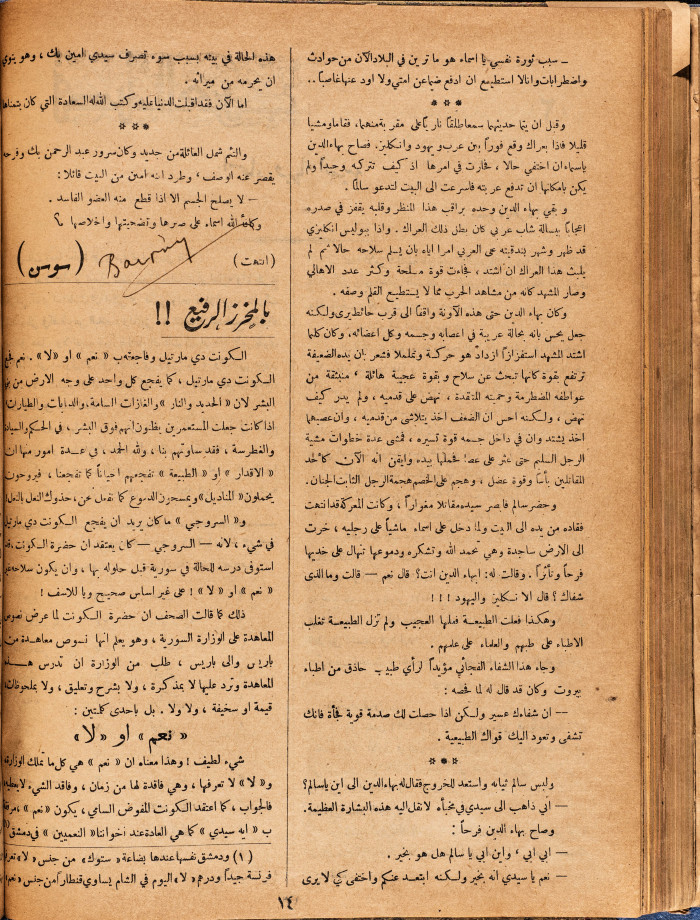 ـ سبب ثورة نفسي يا اسماء هو ما ترين في البلاد الآن من حوادث
واضطرابات وانا لا استطيع ان ادفع ضيما عن امتي ولا اود عنها غاصباً..
* * *
وقبل ان يتما حديثهما سمعا طلقاً نارياً على مقربة منهما، فقاما ومشيا
قليلا فاذا بعراك وقع فوراً بين عرب و يهود وانكليز. فصاح بهاء الدين
باسماء ان اختفي حالا، فحارت في امرها اذ كيف تتركه وحيداً ولم
يكن بامكانها ان تدفع عربته فاسرعت الى البيت لتدعو سالماً.
و بقي بهاء الدين وحده يراقب هذا المنظر وقلبه يقفز في صدره
اعجاباً ببسالة شاب عربي كان بطل ذلك العراك. واذا ببوليس انكليزي
قد ظهر وشهر بندقيته على العربي امرا اياه بان يسلم سلاحه حالا ثم لم
يلبث هذا العراك ان اشتد، فجاءت قوة مسلحة وكثر عدد الاهالي
وصار المشهد كانه من مشاهد الحرب مما لا يستطيع القلم وصفه.
وكان بهاء الدين حتى هذه الآونة واقفاً الى قرب حائط يرى ولكنه
جعل يحس بانه بحالة غريبة في اعصابه وجسمه وكل اعضائه، وكان كلما
اشتد المشهد استفزازاً ازداد هو حركة وتململا فشعر بان يده الضعيفة
ترتفع بقوة كانها تبحث عن سلاح و بقوة عجيبة هائلة، منبثقة من
عواطفه المضطرمة وحميته المتقدة، نهض على قدميه، ولم يدر كيف
نهض، ولكنه احس ان الضعف اخذ يتلاشى من قدميه، وان عصبهما
اخذ يشتد وان في داخل جسمه قوة تسيره، فمشى عدة خطوات مشية
الرجل السليم حتى عثر على عصا فحملها بيده وايقن انه الآن كاحد
المقاتلين بأساً وقوة عضل، وهجم على الخصم هجمة الرجل الثابت الجنان.
وحضر سالم فابصر سيده مقاتلا مغواراً، وكانت المعركة قد انتهت
فقاده من يده الى البيت ولما دخل على اسماء ماشياً على رجليه، خرت
الى الارض ساجدة وهي تحمد الله وتشكره ودموعها تنهال على خديها
فرحاً وتأثراً. وقالت له: ابهاء الدين انت؟ قال نعم — قالت وما الذى
شفاك؟ قال الانكليز واليهود!!!
وهكذا فعلت الطبيعة فعلها العجيب ولم تزل الطبيعة تغلب
الاطباء على طبهم والعلماء على علمهم.
وجاء هذا الشفاء الفجائي مؤيداً لرأي طبيب حاذق من اطباء
بيروت وكان قد قال له لما فحصه:
— ان شفاءك عسير ولكن اذا حصلت لك صدمة قوية فجأة فانك
تشفى وتعود اليك قواك الطبيعية.
* * *
ولبس سالم ثيابه واستعد للخروج فقال له بهاء الدين الى اين يا سالم؟
— اني ذاهب الى سيدي في مخبأه لانقل اليه هذه البشارة العظيمة.
وصاح بهاء الدين فرحاً:
— ابي ابي، واين ابي يا سالم هل هو بخير.
— نعم يا سيدي انه بخير ولكنه ابتعد عنكم واختفى كي لا يرى
هذه الحالة في بيته بسبب سوء تصرف سيدي امين بك، وهو ينوي
ان يحرمه من ميراثه.
اما الآن فقد اقبلت الدنيا عليه وكتب الله له السعادة التي كان يتمناها
* * *
والتئم شمل العائلة من جديد وكان سرور عبد الرحمن بك وفرحه
يقصر عنه الوصف، وطرد ابنه امين من البيت قائلا:
— لا يصلح الجسم الا اذا قطع منه العضو الفاسد.
وكافأ الله اسماء على صبرها وتضحيتها واخلاصها؟
(انتهت)
(سوسن)
بالمخرز الرفيع!!
الكونت دي مارتيل وفاجعته ب «نعم» او «لا». نعم فجع
الكونت دي مارتيل، كما يفجع كل واحد على وجه الارض من بني
البشر لان «الحديد والنار» والغازات السامة، والدبابات والطيارات
اذا كانت جعلت المستعمرين يظنون انهم فوق البشر، في الحكم والسيادة
والغطرسة، فقد ساوتهم بنا، ولله الحمد، في عدة امور منها ان
«الاقدار» او «الطبيعة» تفجعهم احياناً كما تفجعنا، فيروحون
يحملون «المناديل» ويمسحون الدموع كما نفعل نحن، حذوك النعل بالنعل
و «السروجي» ما كان يريد ان يفجع الكونت دي مارتيل
في شيء، لانه — السروجي — كان يعتقد ان حضرة الكونت، قد
استوفى درسه للحالة في سورية قبل حلوله بها، وان يكون سلاحه غير
«نعم» او «لا»! على غير اساس صحيح ويا للاسف!
ذلك كما قالت الصحف ان حضرة الكونت لما عرض نصوص
المعاهدة على الوزارة السورية، وهو يعلم انها نصوص معاهدة من
باريس والى باريس، طلب من الوزارة ان تدرس هذه
المعاهدة وترد عليها لا بمذكرة، ولا بشرح وتعليق، ولا بملحوظات
قيمة او سخيفة، ولا ولا. بل باحدى كلمتين:
«نعم» او «لا»
شيء لطيف! وهذا معناه ان «نعم» هي كل ما تملك الوزارة
و «لا» لا تعرفها، وهي فاقدة لها من زمان، وفاقد الشيء لا يعطيه
فالجواب، كما اعتقد الكونت المفوض السامي، يكون «نعم»
ب «ايه سيدي» كما هي العادة عند اخواننا «النعميين» في دمشق (١)
(١) ودمشق نفسها عندها بضاعة «ستوك» من جنس «لا» تعرفها
فرنسة جيداً ودرهم «لا» اليوم في الشام يساوي قنطاراً من جنس «نعم»
١٤